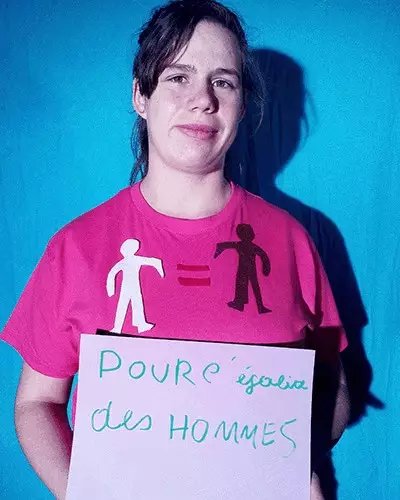 POURe' égalité
des HOMMES